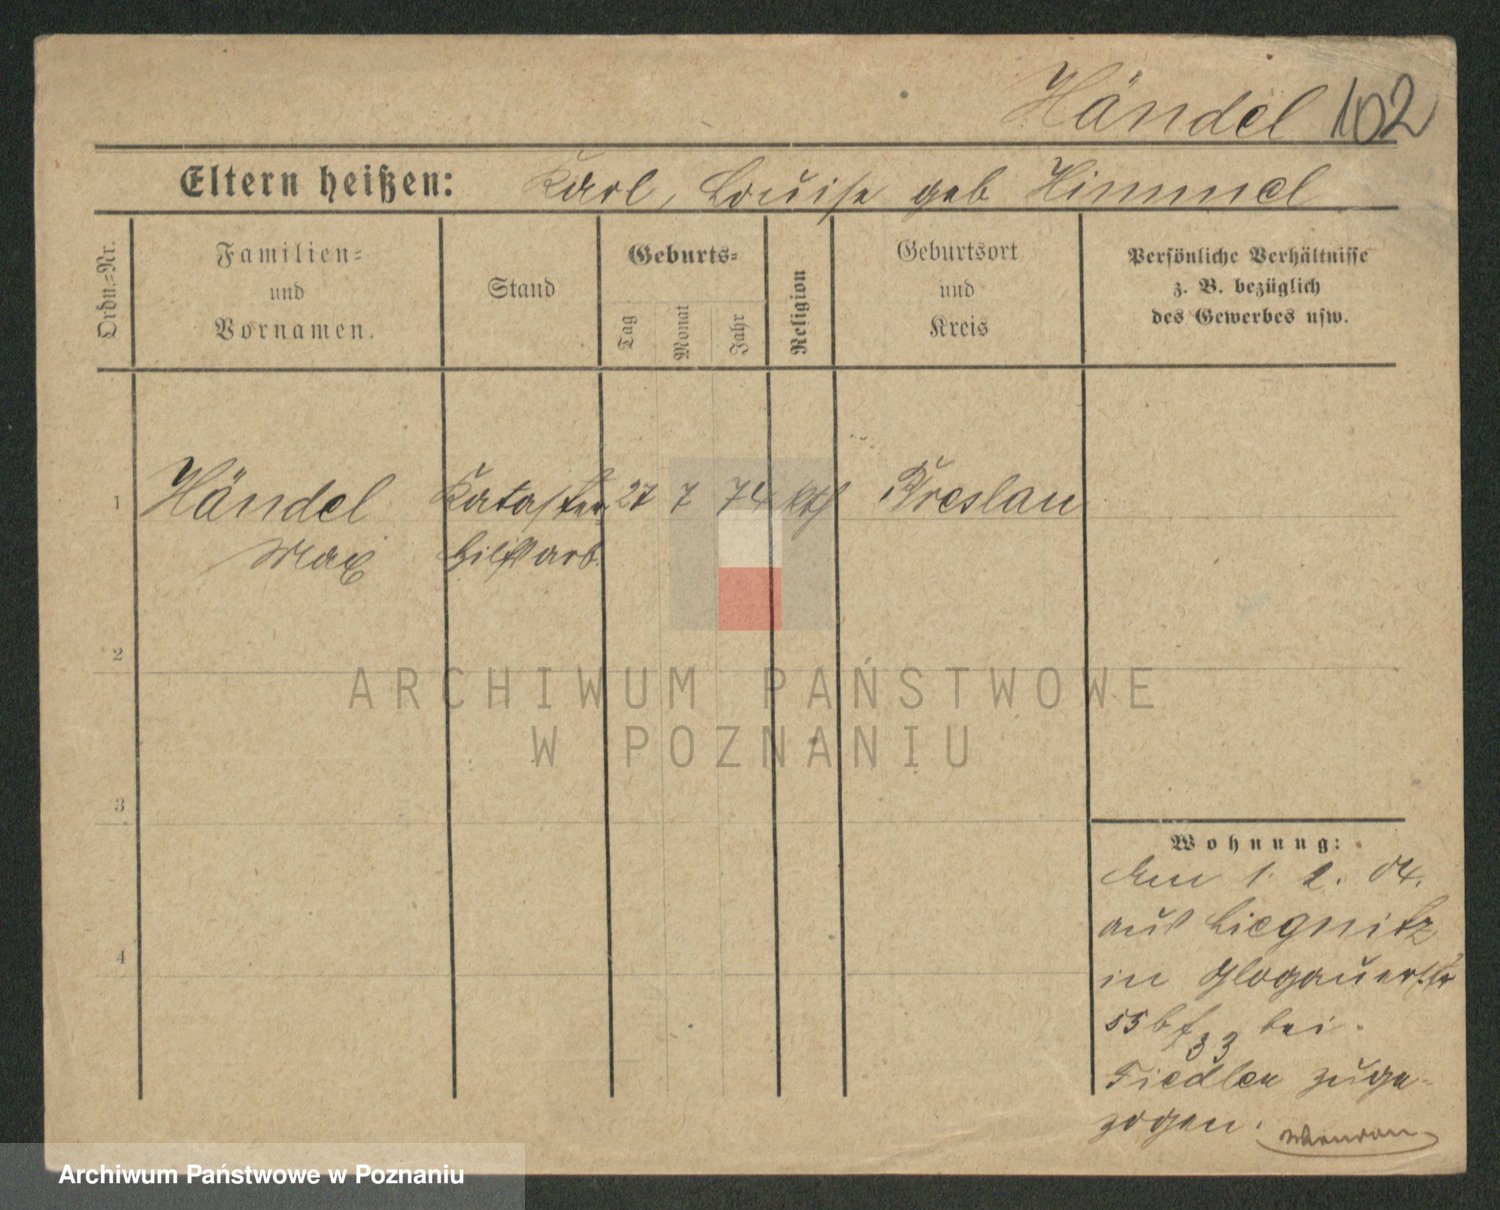 Händel 102
Eltern heißen: Karl, Louise geb Himmel
Ordn.-Nr.
Familien-
und
Vornamen.
Stand
Geburts-
Tag
Monat
Jahr
Religion
Geburtsort
und
Kreis
Persönliche Verhältnisse
z. B. bezüglich
des Gewerbes usw.
1 Händel Kataster 27 7 74 kth Breslau
Max hilfsarb.
2
ARCHIWUM PAŃSTWOWE
W POZNANIU
3
Wohnung:
Am 1. 2. 04.
aus Liegnitz
in Glogauerstr
55b bei
33
Fiedler zuge-
zogen.
4
Archiwum Państwowe w Poznaniu